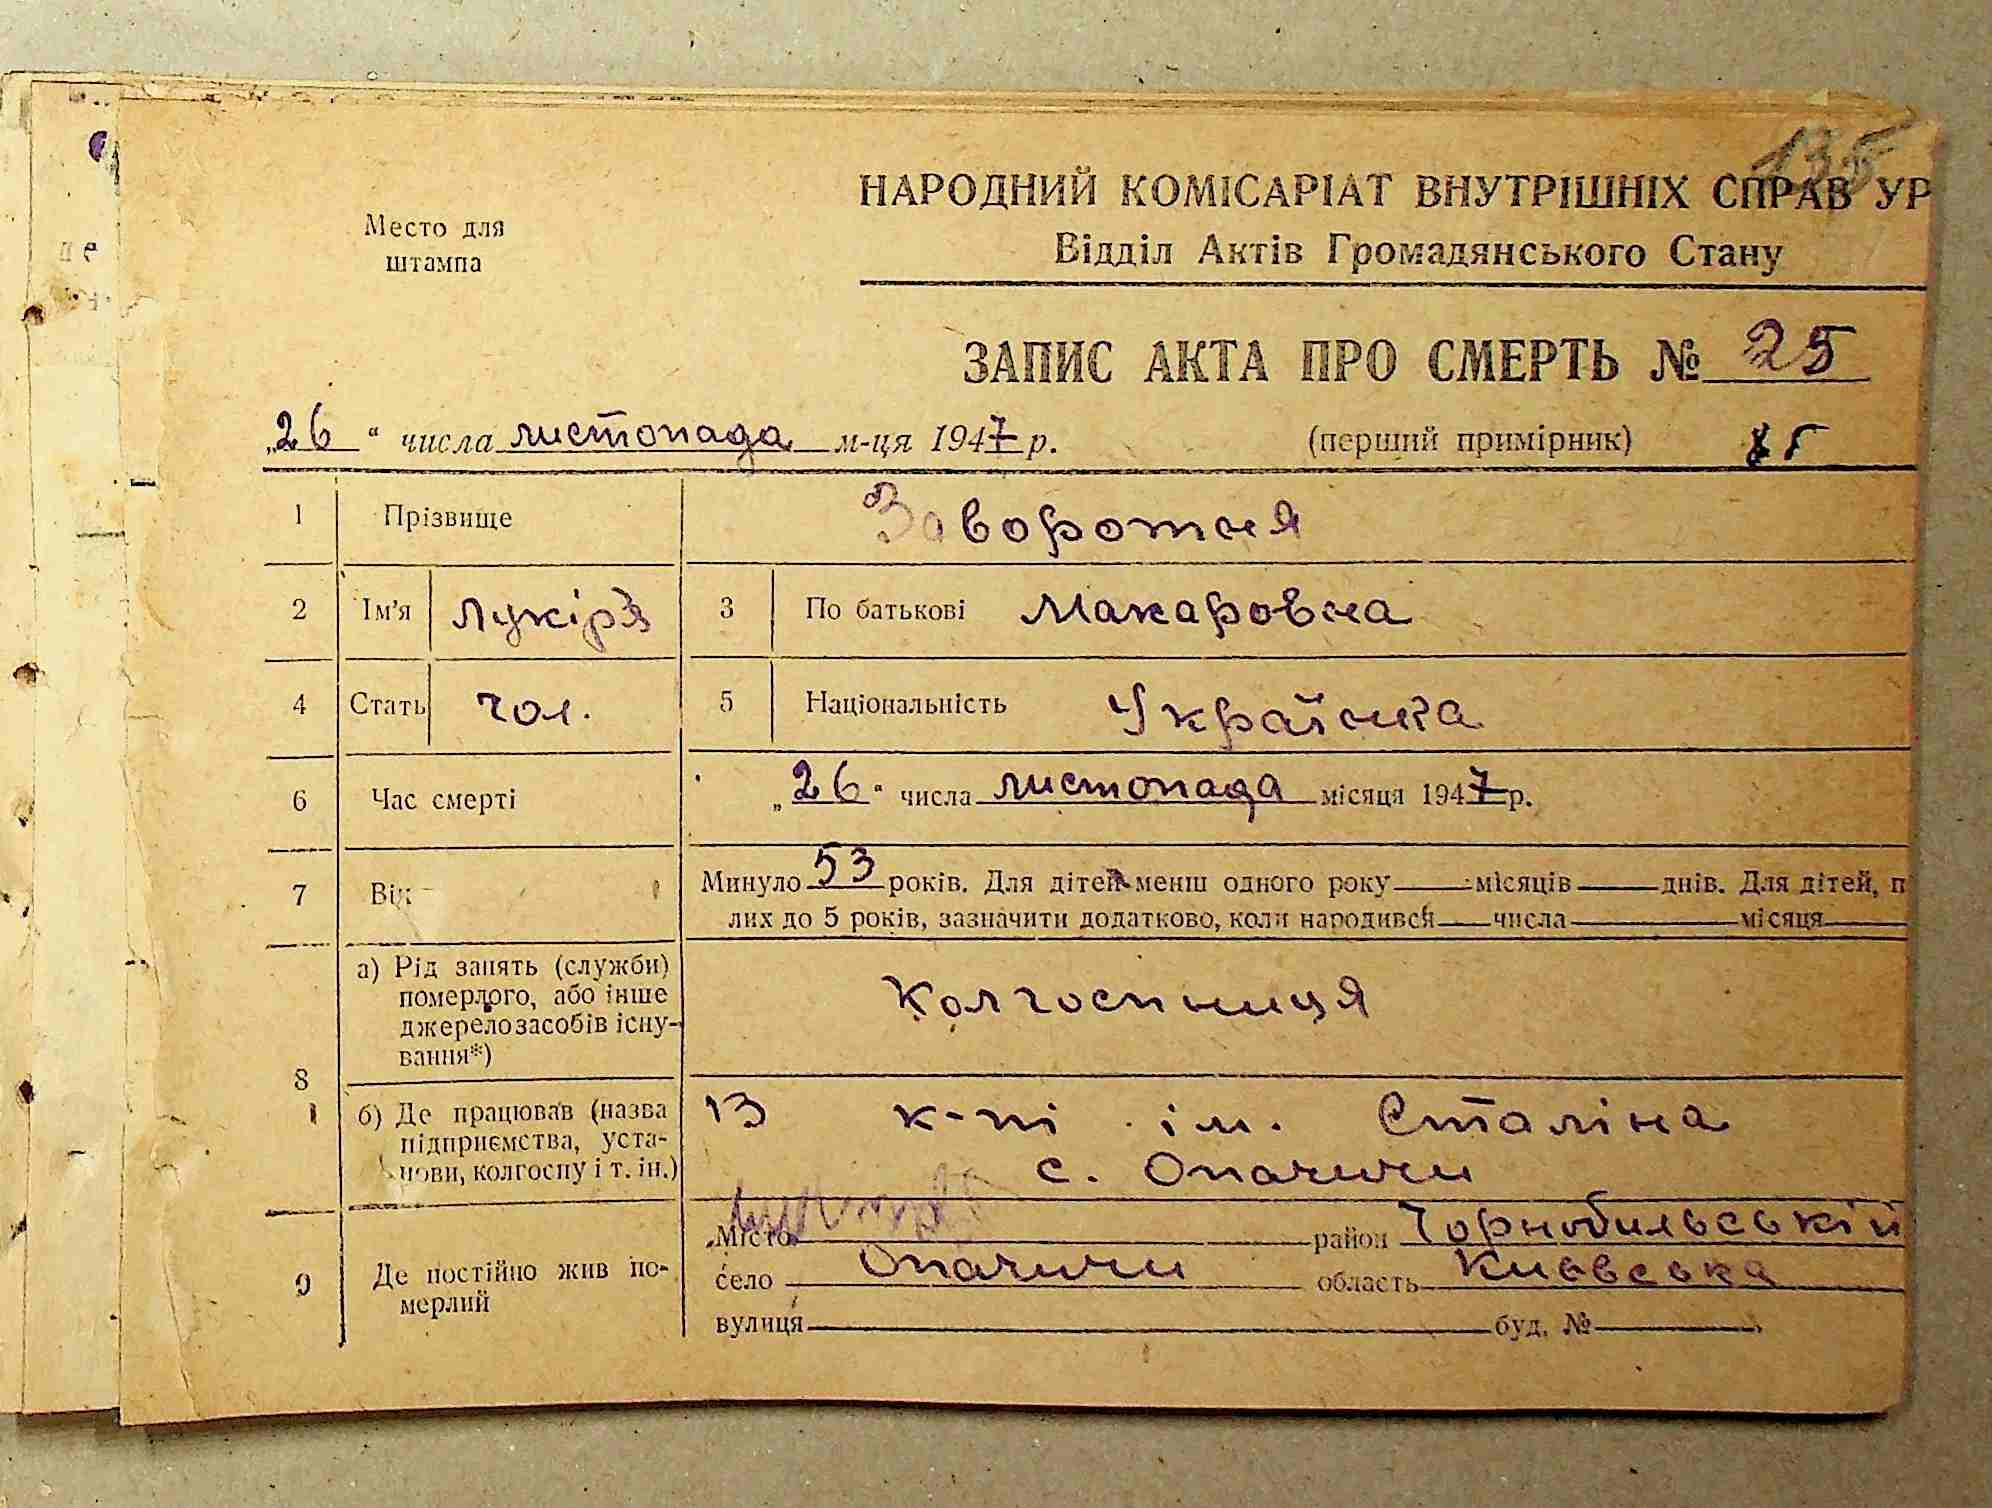 135
НАРОДНИЙ КОМІСАРІАТ ВНУТРІШНІХ СПРАВ УР
Место для
штампа
Відділ Актів Громадянського Стану
ЗАПИС АКТА ПРО СМЕРТЬ № 25
„26“ числа листопада м-ця 1947 р. (перший примірник)
1 Прізвище Заворотня
2 Ім'я Лукір'я 3 По батькові Макаровна
4 Стать чол. 5 Національність Українка
6 Час смерті „26“ числа листопада місяця 1947 р.
7 Вік Минуло 53 років. Для дітей менш одного року — місяців — днів. Для дітей, п
лих до 5 років, зазначити додатково, коли народився — числа — місяця
8 а) Рід занять (служби)
померлого, або інше
джерело засобів існу-
вання*)
Колгоспниця
б) Де працював (назва
підприємства, уста-
нови, колгоспу і т. ін.)
В к-пі ім. Сталіна
с. Опачичи
9 Де постійно жив по-
мерлий
Місто район Чорнобильській
село Опачичи область Київська
вулиця буд. №